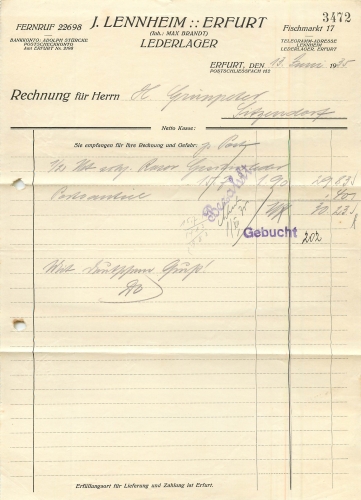 3472
FERNRUF 22698
J. LENNHEIM :: ERFURT
(Inh.: MAX BRANDT)
LEDERLAGER
Fischmarkt 17
BANKKONTO: ADOLPH STÜRCKE
POSTSCHECKKONTO
Amt ERFURT Nr. 2198
TELEGRAMM-ADRESSE
LENNHEIM
LEDERLAGER, ERFURT
ERFURT, den 13. Juni 1935
POSTSCHLIESSFACH 122
Rechnung für Herrn H Grimpeter
Sitzendorf
Netto Kasse:
Sie empfangen für Ihre Rechnung und Gefahr: p. Post
1.90 29.83
Portoanteil .40
RM 30.23
Bezahlt
Gebucht
202
Mit Deutschem Gruß!
Erfüllungsort für Lieferung und Zahlung ist Erfurt.